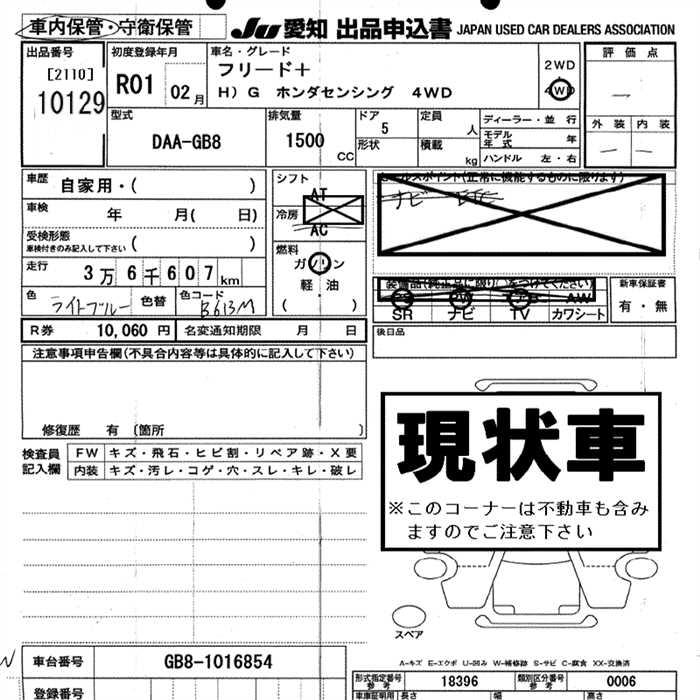 車内保管・守衛保管
JU 愛知 出品申込書 JAPAN USED CAR DEALERS ASSOCIATION
出品番号
[2110]
10129
初度登録年月
R01 02月
車名・グレード
フリード+
H) G ホンダセンシング 4WD
2WD
4WD
評価点
外装 内装
型式
DAA-GB8
排気量
1500
CC
ドア
5
形状
定員
人
積載
kg
ディーラー・並行
モデル年式 年
ハンドル 左・右
車歴 自家用・( )
車検 年 月( 日)
受検形態
車検付きのみ記入して下さい ( )
走行 3万6千607km
色 ライトブルー 色替 色コード B613M
シフト
AT
冷房
AC
燃料
ガソリン
軽・油
( )
セールスポイント(正常に機能するものに限ります)
ナビ ETC
装備品(純正品に限り○をつけてください)
SR ナビ TV AW カワシート
新車保証書
有・無
R券 10,060円 名変通知期限 月 日
後日品
注意事項申告欄(不具合内容等は具体的に記入して下さい)
修復歴 有 (箇所 )
検査員
記入欄
FW キズ・飛石・ヒビ割・リペア跡・X要
内装 キズ・汚レ・コゲ・穴・スレ・キレ・破レ
現状車
※このコーナーは不動車も含み
ますのでご注意下さい
スペア
A-キズ E-エクボ U-凹み W-補修跡 S-サビ C-腐食 XX-交換済
車台番号 GB8-1016854
登録番号
型式指定番号
参考
18396
類別区分番号
参考
0006
車車証明用 長さ 幅 高さ